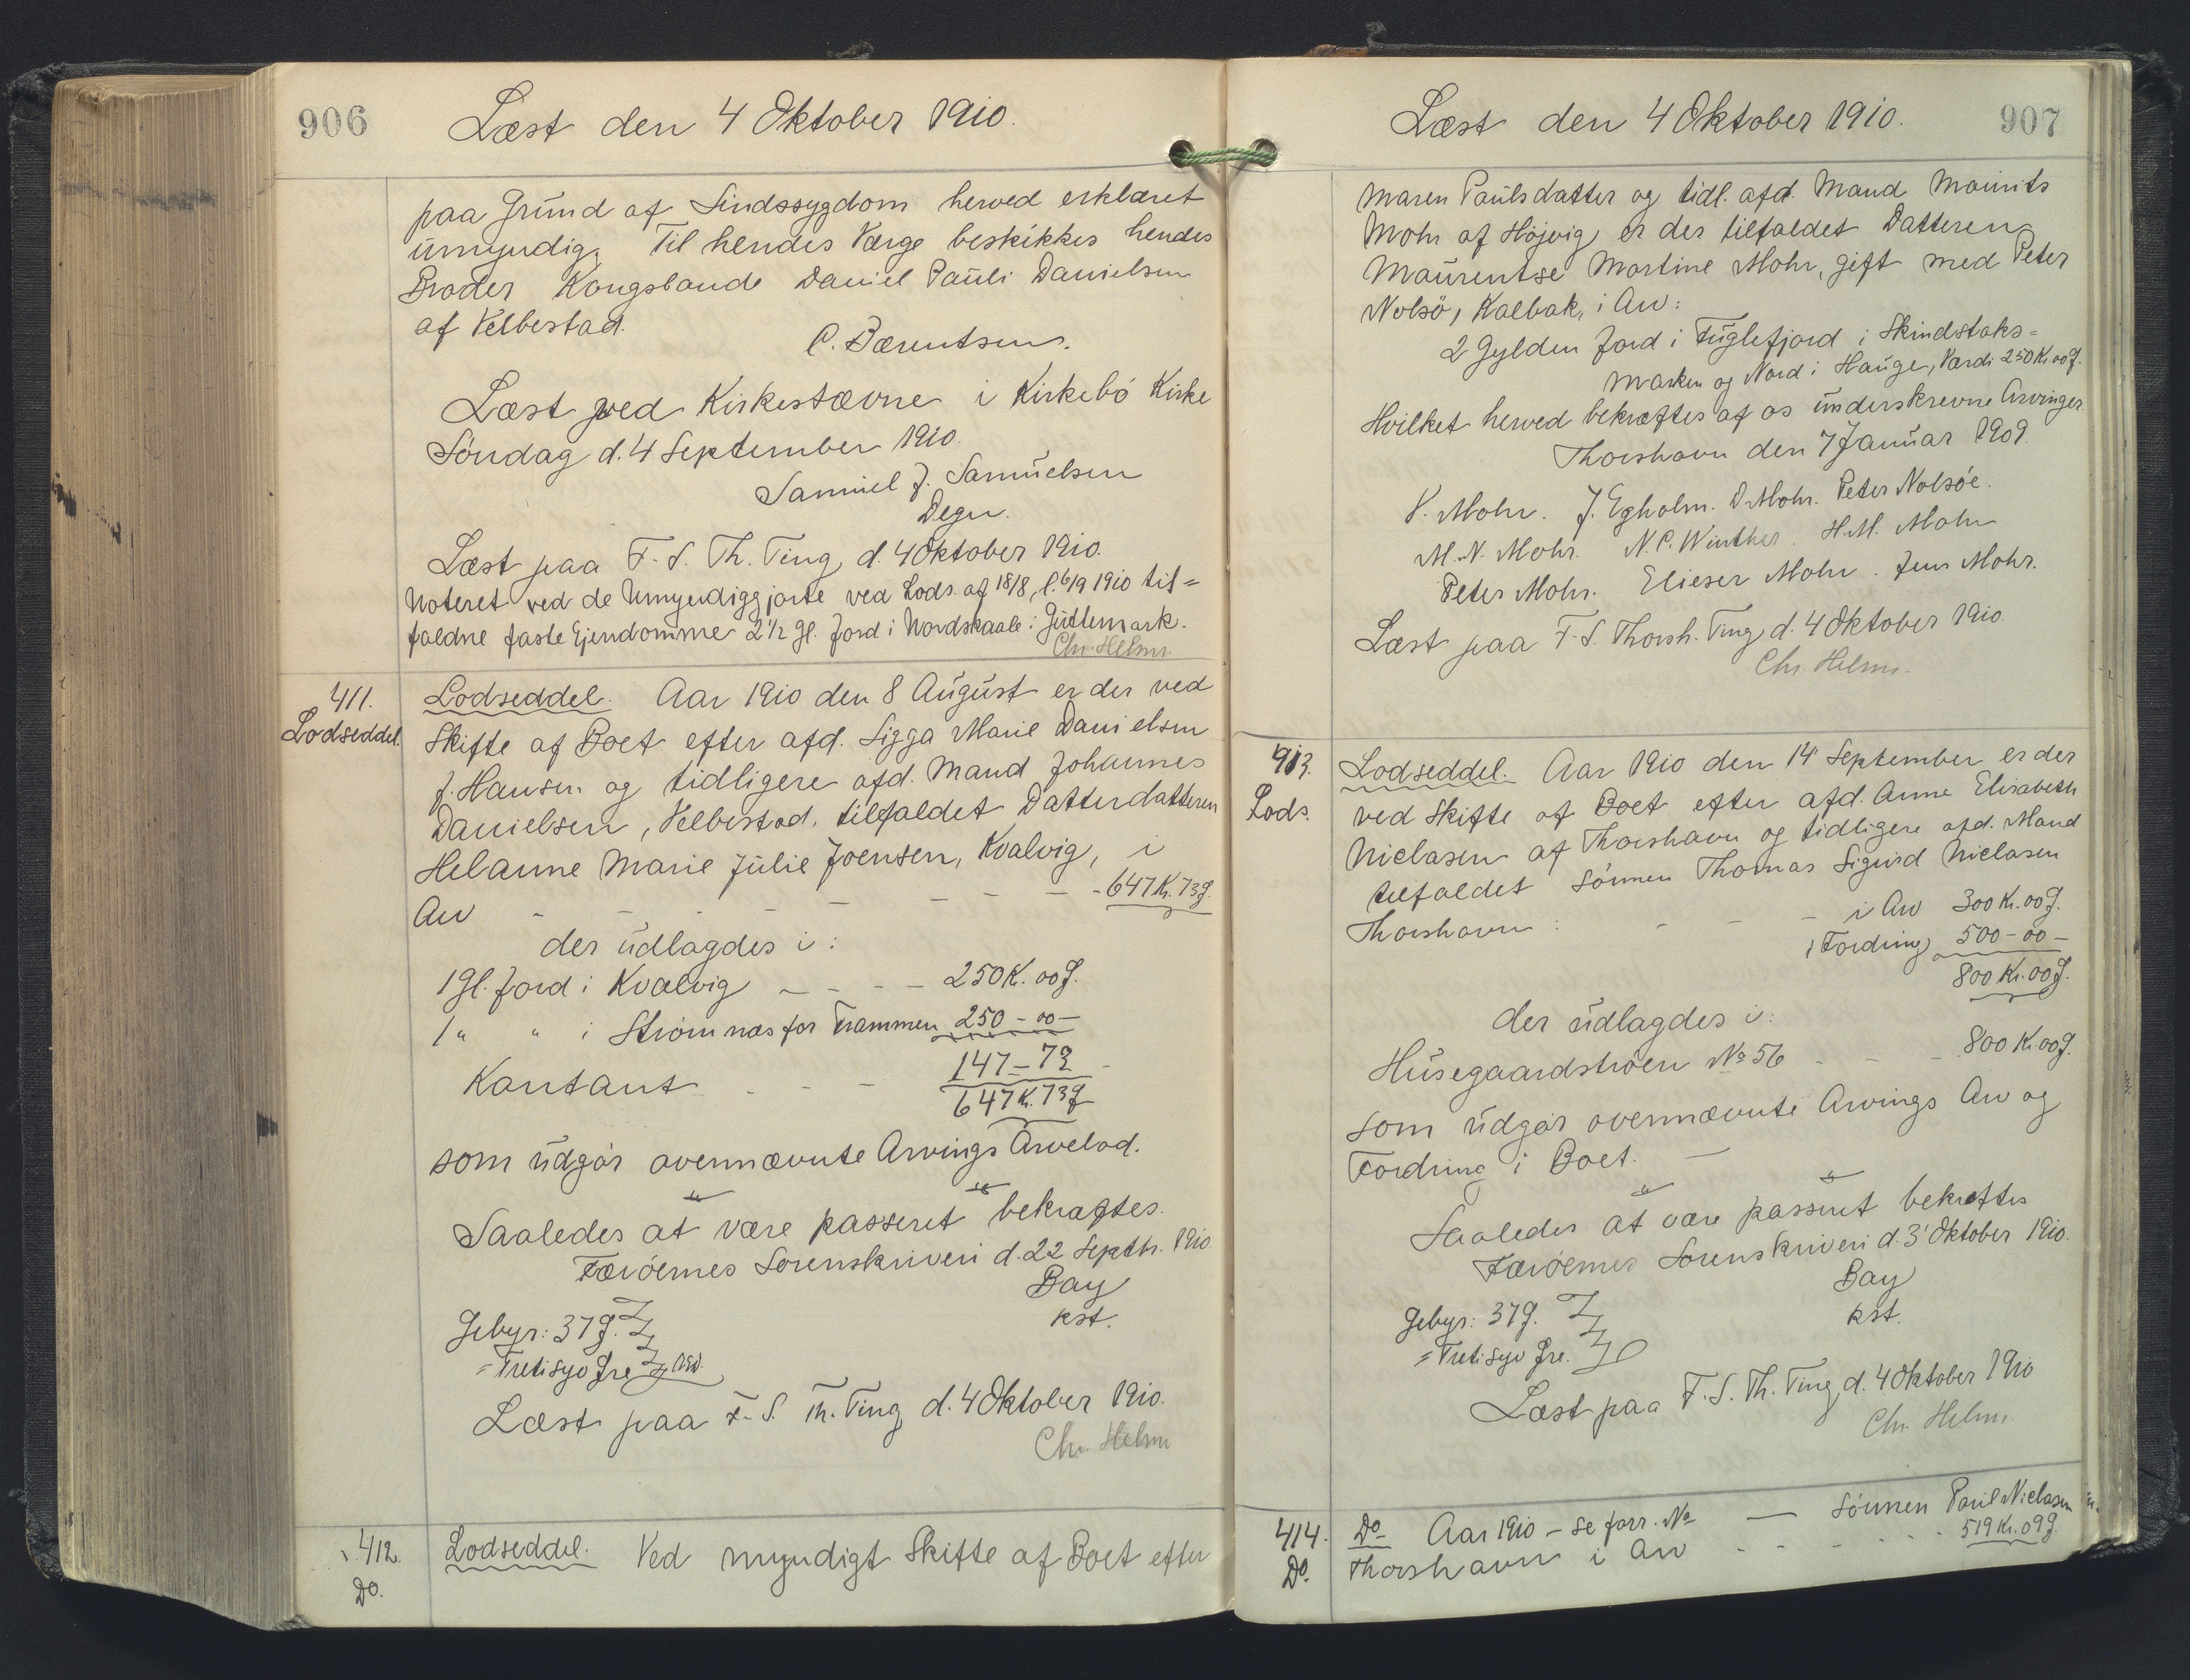 906
Læst den 4 Oktober 1910.
paa Grund af Sindssygdom herved erklæret
umyndig. Til hendes Værge beskikkes hendes
Broder Kongsbonde Daniel Pauli Danielsen
af Velbestad.
C. Bærentsen.
Læst ved Kirkestævne i Kirkebö Kirke
Söndag d. 4 September 1910.
Samuel J. Samuelsen
Degn.
Læst paa F. S. Th. Ting d. 4 Oktober 1910.
Noteret ved de Umyndiggjorte ved Lods. af 18/8, l. 6/9 1910 til=
faldne faste Ejendomme 2 1/2 Gl. Jord i Nordskaale i Guttemark.
Chr. Helms
411.
Lodseddel.
Lodseddel. Aar 1910 den 8 August er der ved
Skifte af Boet efter afd. Sigga Marie Danielsen
f. Hansen og tidligere afd. Mand Johannes
Danielsen, Velbestad, tilfaldet Datterdatteren
Helanne Marie Julie Joensen, Kvalvig, i
Arv - - - - - - - 647 Kr. 73 Ø.
der udlagdes i:
1 Gl. Jord i Kvalvig - - - - 250 K. 00 Ø.
1 " " i Strömnæs for Frammen 250 - 00 -
Kontant - - - 147 - 73 -
647 K. 73 Ø
som udgör ovennævnte Arvings Arvelod.
Saaledes at være passeret bekræftes.
Færöernes Sorenskriveri d. 22 Septbr. 1910
Bay
kst.
Gebyr: 37 Ø.
= Tretisyv Øre
Læst paa F. S. Th. Ting d. 4 Oktober 1910.
Chr. Helms
412.
Do.
Lodseddel. Ved myndigt Skifte af Boet efter
Læst den 4 Oktober 1910.
907
Maren Paulsdatter og tidl. afd. Mand Mourits
Mohr af Höjvig er der tilfaldet Datteren
Maurentse Martine Mohr, gift med Peter
Nolsö, Kalbak, i Arv:
2 Gylden Jord i Fuglefjord i Skindstaks=
marken og Nord i Hauge, Værdi 250 Kr. 00 Ø.
Hvilket herved bekræftes af os underskrevne Arvinger.
Thorshavn den 7 Januar 1909
V. Mohr. J. Egholm. D. Mohr. Peter Nolsöe.
M. N. Mohr. N. C. Winther. H. M. Mohr
Peter Mohr. Elieser Mohr. Jens Mohr.
Læst paa F. S. Thorsh. Ting d. 4 Oktober 1910.
Chr. Helms.
413.
Lods.
Lodseddel. Aar 1910 den 14 September er der
ved Skifte af Boet efter afd. Anne Elisabeth
Niclasen af Thorshavn og tidligere afd. Mand
tilfaldet Sönnen Thomas Sigurd Niclasen
Thorshavn: - - - i Arv 300 Kr. 00 Ø.
i Fordring 500 - 00 -
800 Kr. 00 Ø.
der udlagdes i:
Husegaardströen No 56 - - - 800 Kr. 00 Ø.
som udgör ovennævnte Arvings Arv og
Fordring i Boet. -
Saaledes at være passeret bekræftes
Færöernes Sorenskriveri d. 3' Oktober 1910.
Bay
kst.
Gebyr: 37 Ø.
= Tretisyv Øre.
Læst paa F. S. Th. Ting d. 4 Oktober 1910
Chr. Helms.
414.
Do.
Do Aar 1910 - se forr. No — Sönnen Paul Niclasen
Thorshavn i Arv - - - - - 519 Kr. 09 Ø.